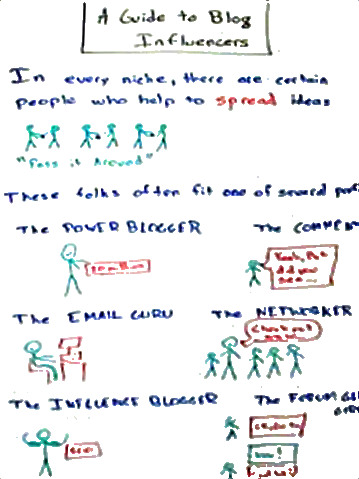 A Guide to Blog
Influencers
In every niche, there are certain
people who help to spread ideas
"Pass it Around"
These folks often fit one of several
The POWER BLOGGER
The
Yeah, But
did you
see...
The EMAIL GURU
The NETWORKER
Check out
The INFLUENCE BLOGGER
The